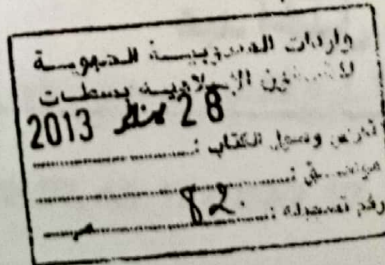 واردات المندوبية الجهوية
للشؤون الإسلامية بسطات
28 يناير 2013
تاريخ وصول الكتاب :
مرفق :
رقم تسجيله : 82